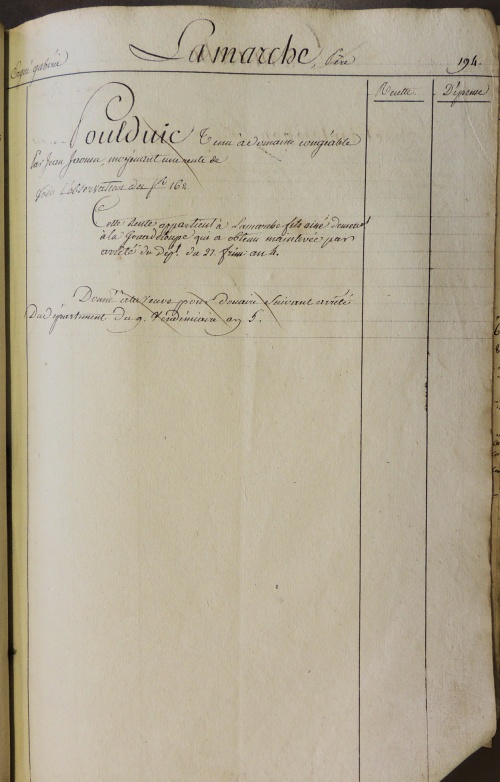 Lamarche, Père
194.
Ergué gabéric
Recette
Dépense
Poulduic Tenu à domaine congéable
Par Jean Jaouen, moyenant une rente de
Voir l'observation du fo. 168
Cette Rente appartient à Lamarche fils ainé demeurt
à la Guadeloupe qui a obtenu mainlevée par
arrêté du dépt. du 27. frim: an 4.
Donné à la Veuve pour douaire suivant arrêté
Du département du 9. Vendémiaire an 5.